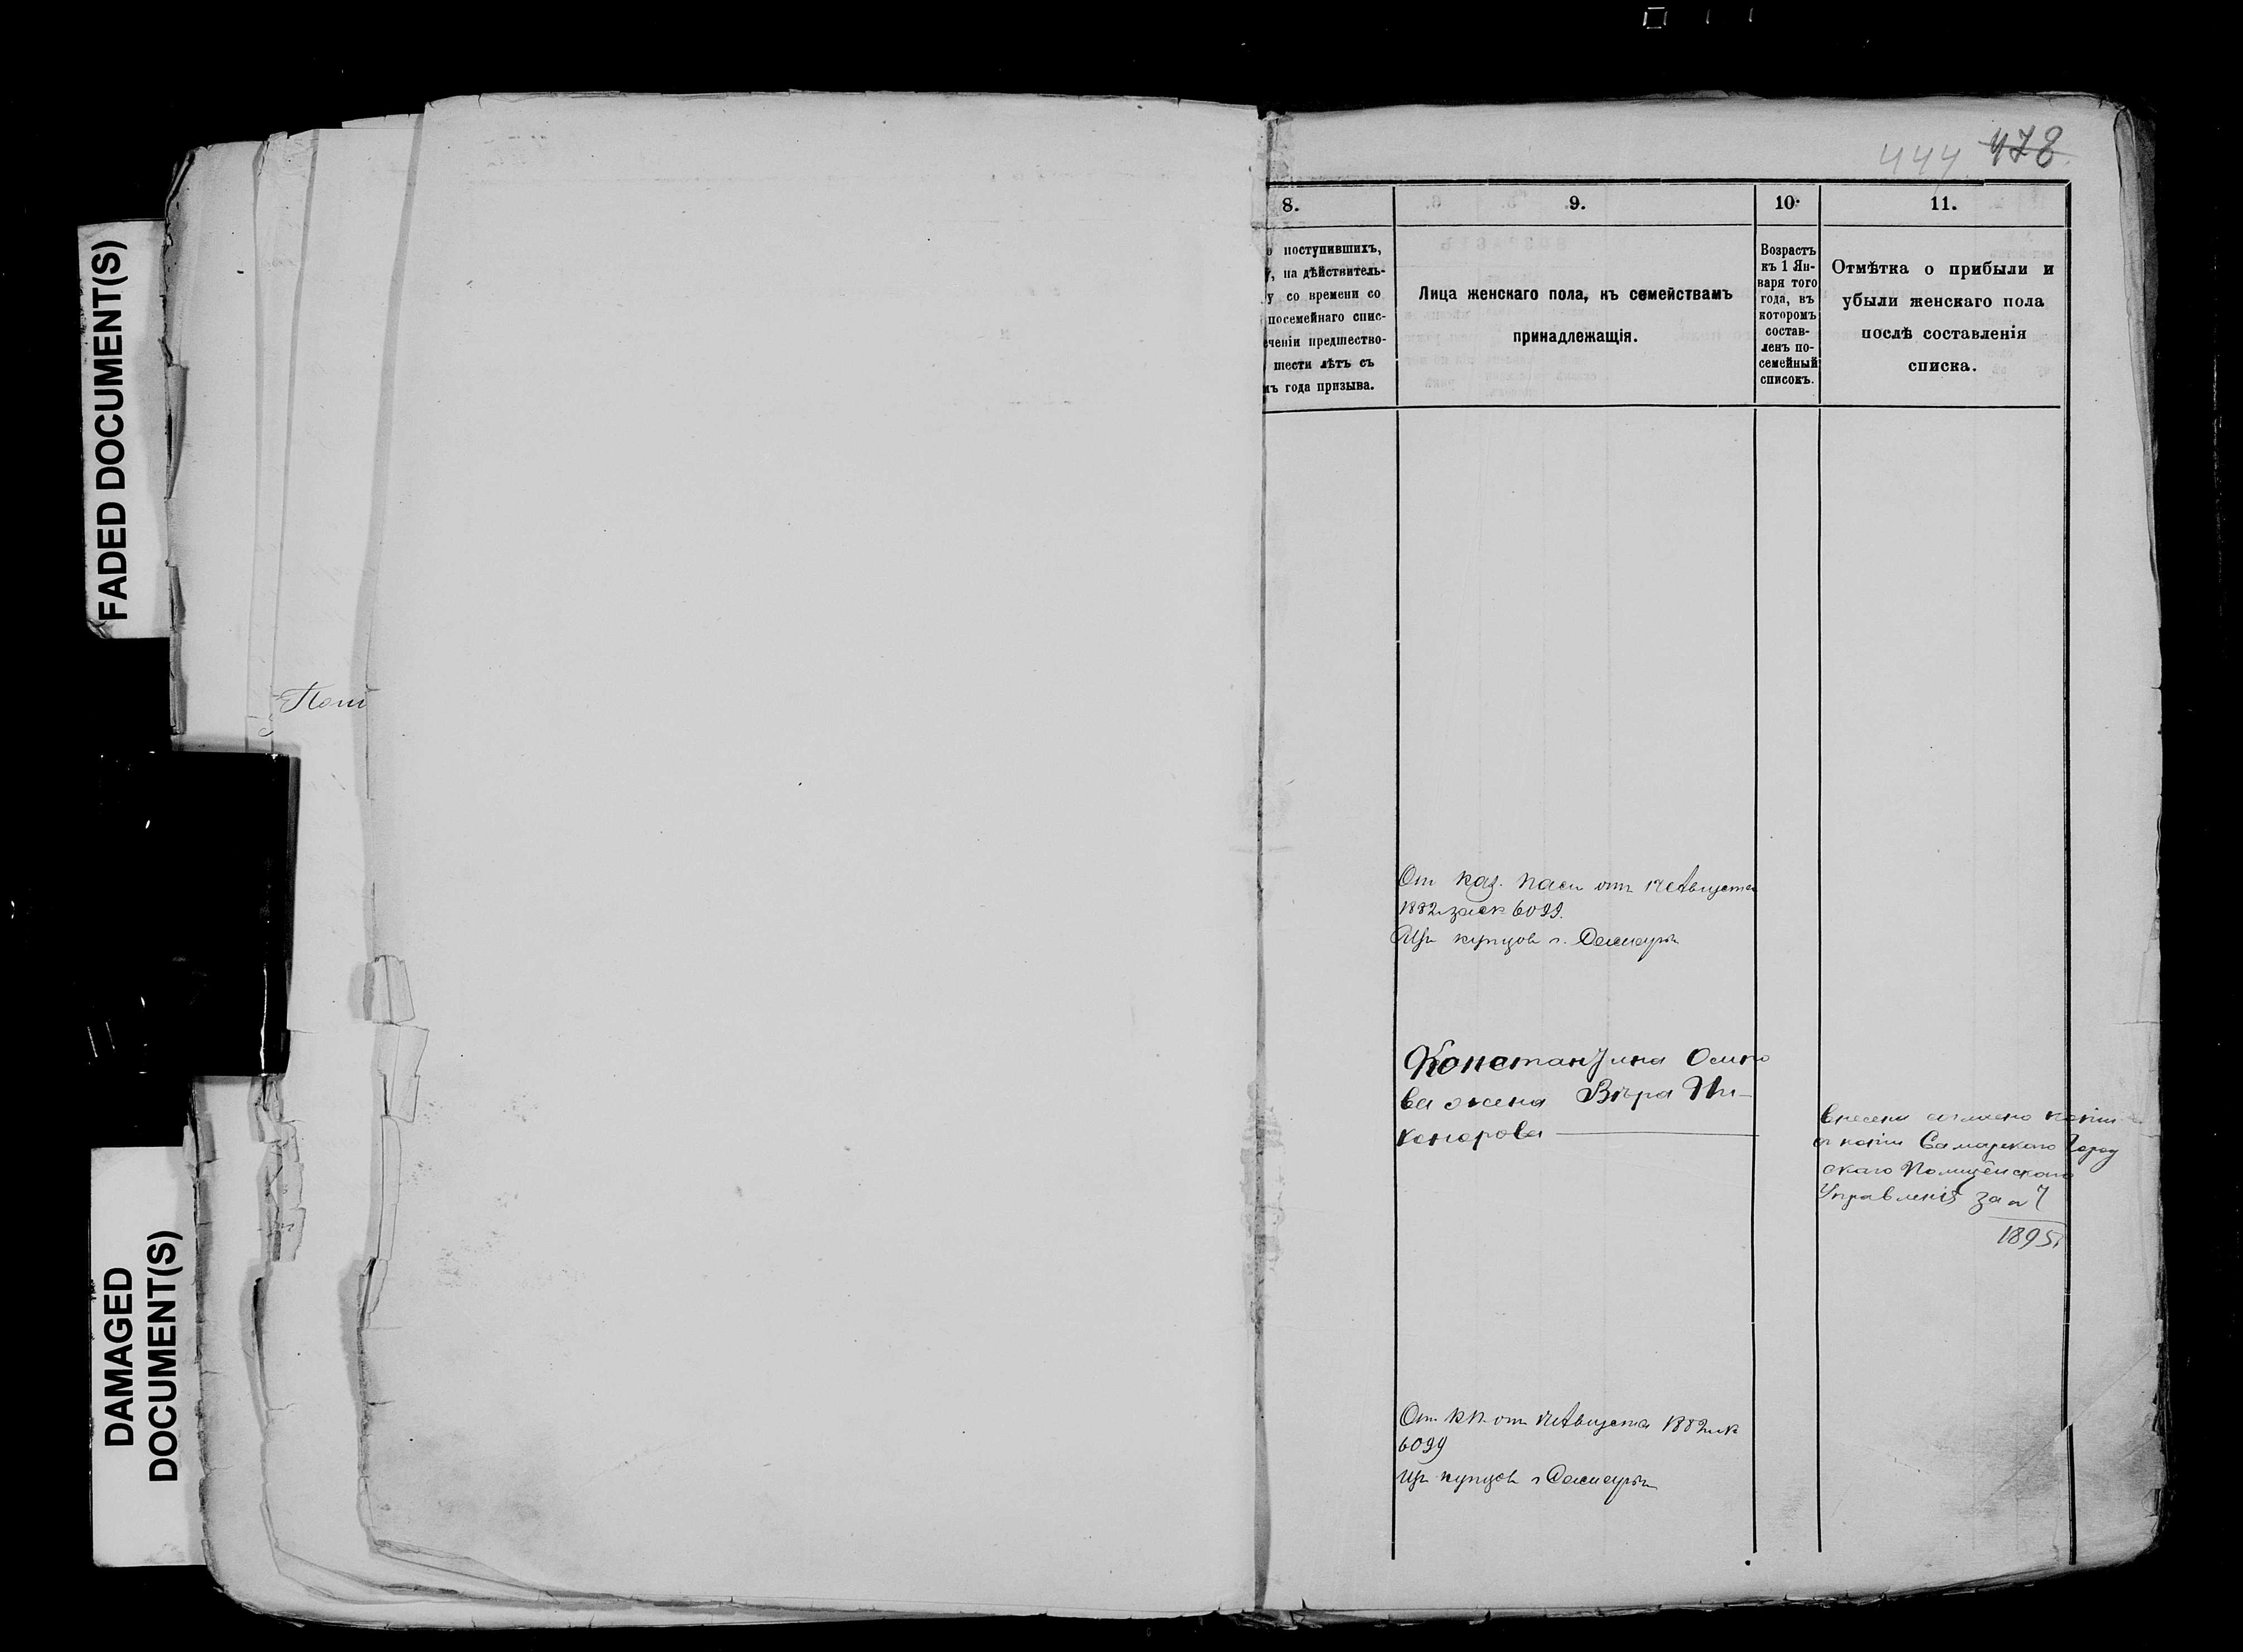 FADED DOCUMENT(S)
DAMAGED
DOCUMENT(S)
444 478
8.
поступившихъ,
на дѣйствитель-
у со времени со
посемейнаго спис-
ченіи предшество-
шести лѣтъ съ
года призыва.
9.
Лица женскаго пола, къ семействамъ
принадлежащія.
10.
Возрастъ
къ 1 Ян-
варя того
года, въ
которомъ
состав-
ленъ по-
семейный
списокъ.
11.
Отмѣтка о прибыли и
убыли женскаго пола
послѣ составленія
списка.
От каз. пал отъ 17 Августа
1882 за № 6099.
Изъ купцовъ г. Самары
Константина Осипо
ва жена Вѣра Ни-
канорова
Внесена согласно копіи
Самарскаго Город
скаго Полицейскаго
Управленія за № 7
1895
От кп отъ 17 Августа 1882 №
6099
Изъ купцовъ г Самары